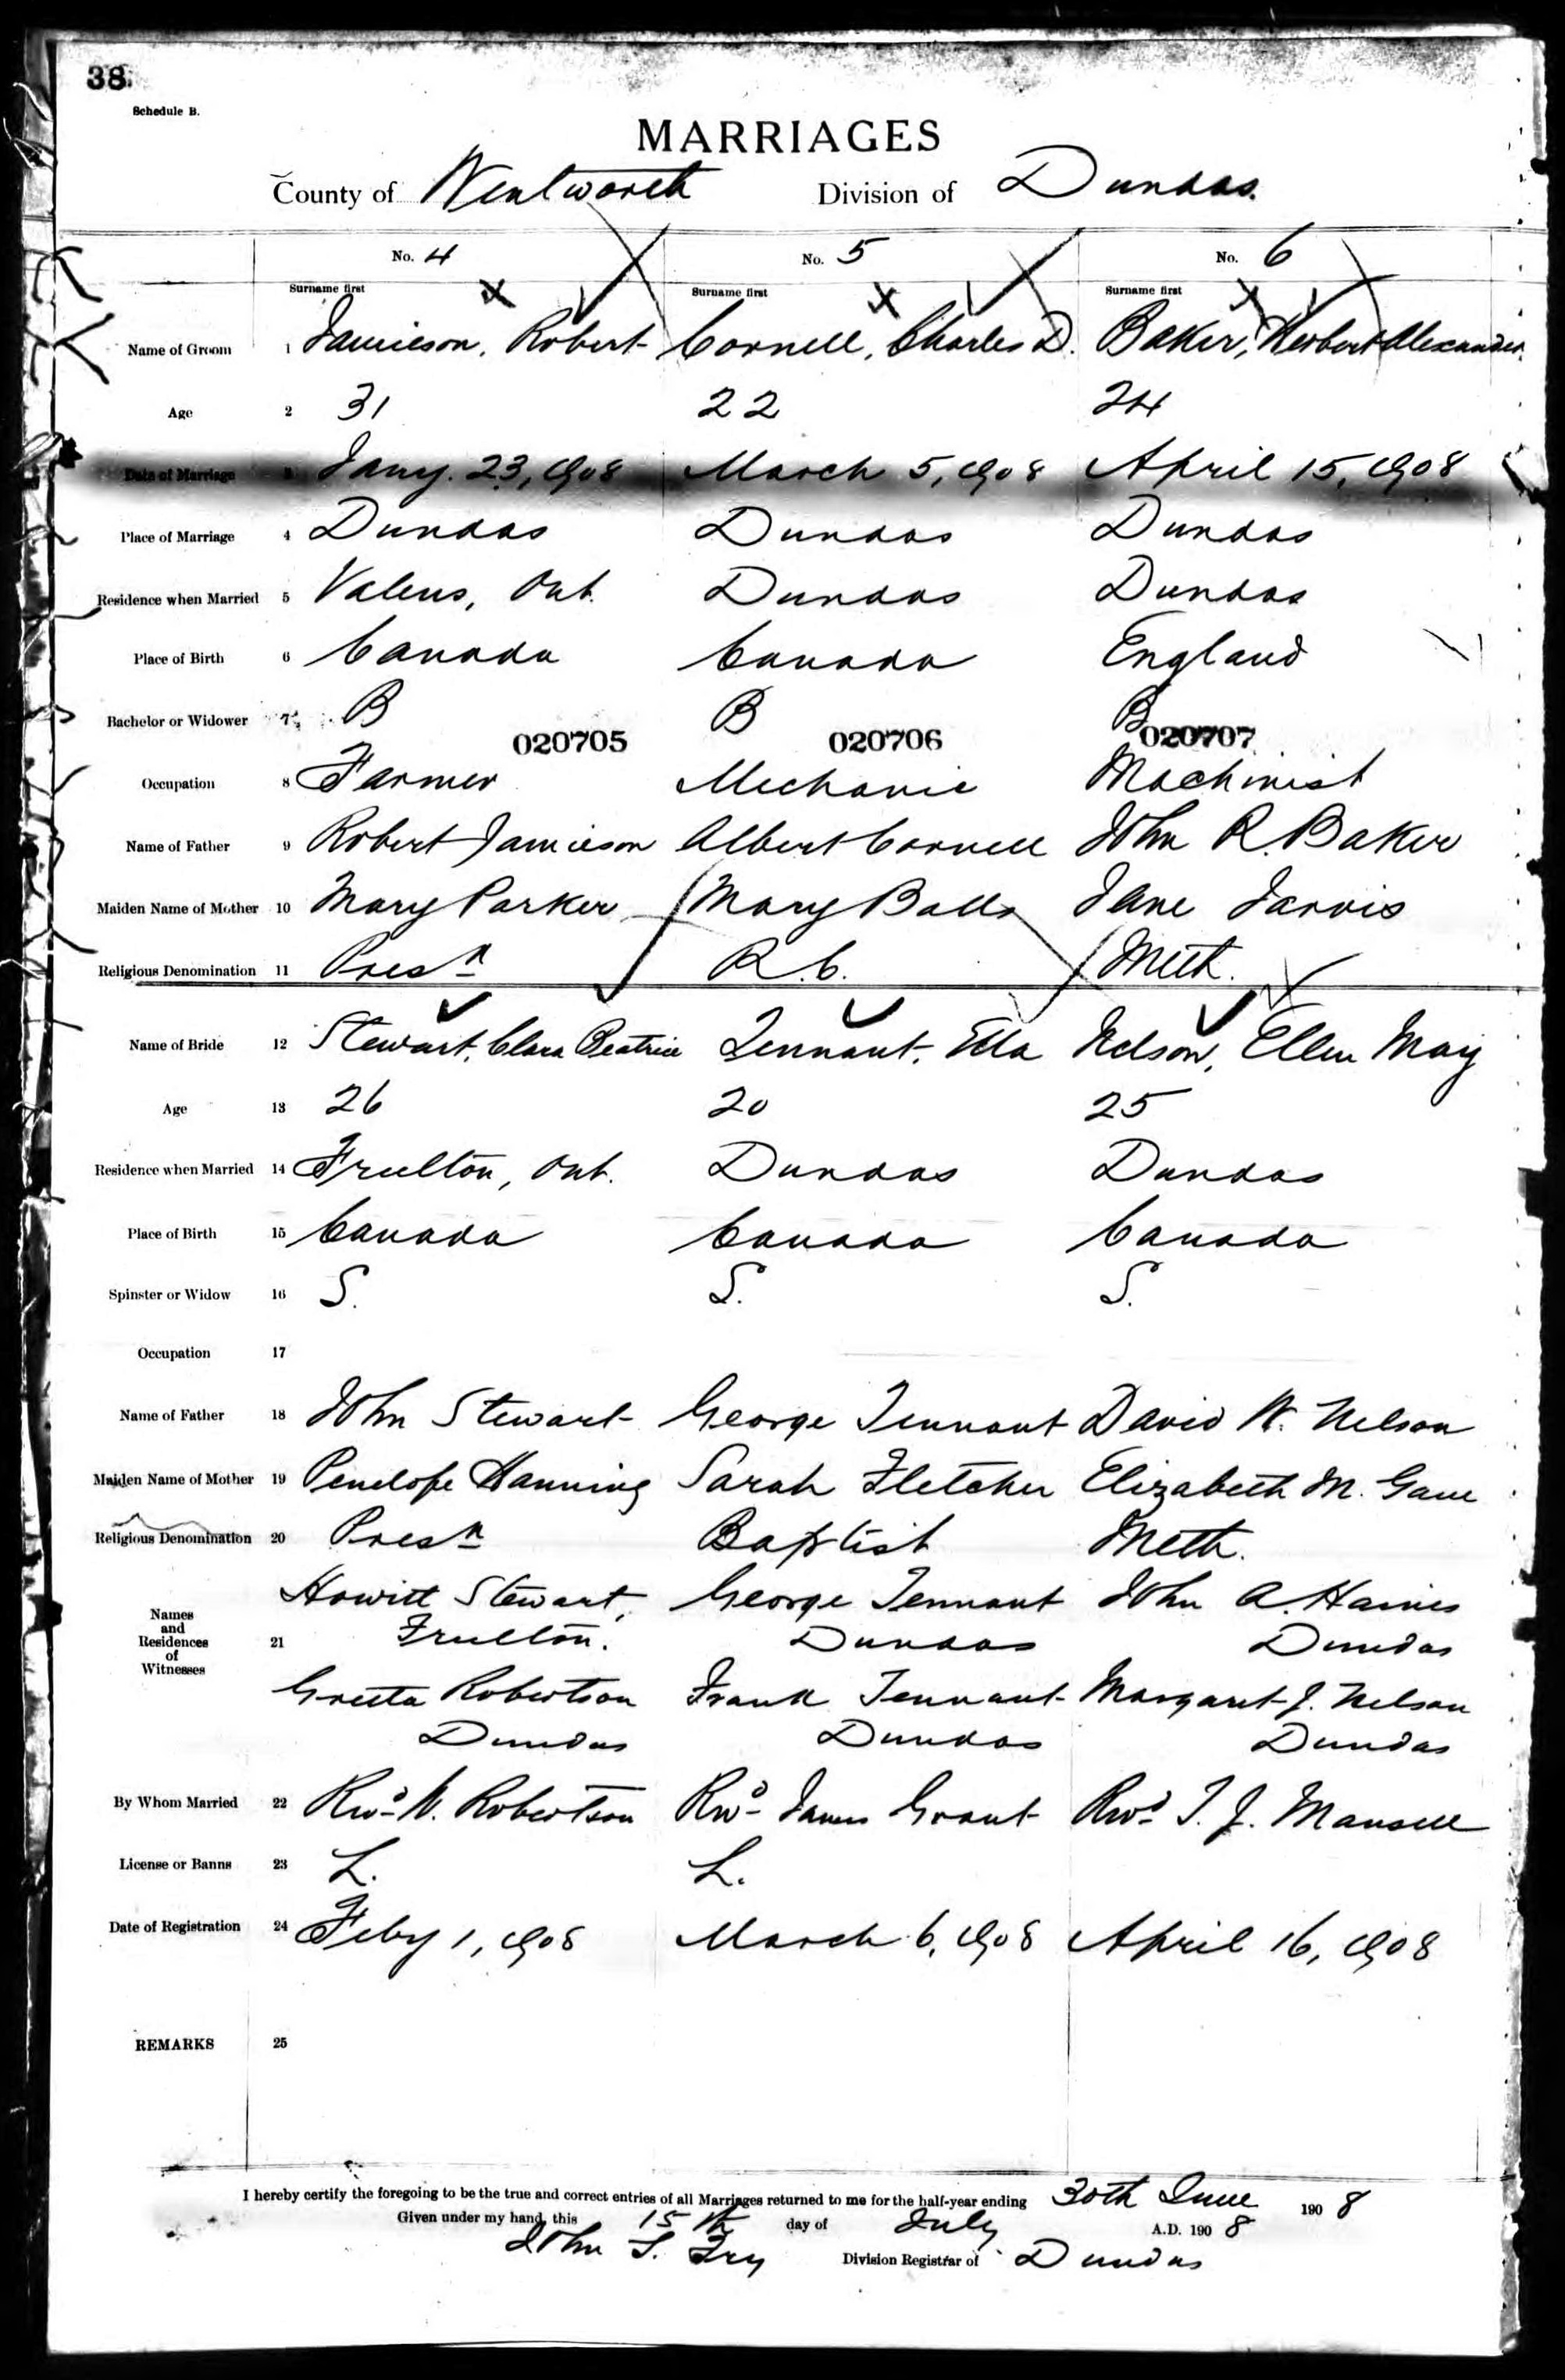 38
Schedule B.
MARRIAGES
County of Wentworth Division of Dundas.
No. 4 No. 5 No. 6
Surname first Surname first Surname first
Name of Groom 1 Jamieson, Robert Cornell, Charles D. Baker, Herbert Alexander
Age 2 31 22 24
Date of Marriage 3 Jany. 23, 1908 March 5, 1908 April 15, 1908
Place of Marriage 4 Dundas Dundas Dundas
Residence when Married 5 Valens, Ont. Dundas Dundas
Place of Birth 6 Canada Canada England
Bachelor or Widower 7 B B B
020705 020706 020707
Occupation 8 Farmer Mechanic Machinist
Name of Father 9 Robert Jamieson Albert Cornell John R. Baker
Maiden Name of Mother 10 Mary Parker Mary Balls Jane Jarvis
Religious Denomination 11 Presn R.C. Meth.
Name of Bride 12 Stewart, Clara Beatrice Tennant, Ella Nelson, Ellen May
Age 13 26 20 25
Residence when Married 14 Freelton, Ont. Dundas Dundas
Place of Birth 15 Canada Canada Canada
Spinster or Widow 16 S. S. S.
Occupation 17
Name of Father 18 John Stewart George Tennant David W. Nelson
Maiden Name of Mother 19 Penelope Hanning Sarah Fletcher Elizabeth M.
Religious Denomination 20 Presn Baptist Meth.
Howitt Stewart, George Tennant John A. Haines
Names and Residences of Witnesses 21 Freelton. Dundas Dundas
Greeta Robertson Frank Tennant Margaret J. Nelson
Dundas Dundas Dundas
By Whom Married 22 Revd W. Robertson Revd James Grant Revd T. J. Mansell
License or Banns 23 L. L.
Date of Registration 24 Feby 1, 1908 March 6, 1908 April 16, 1908
REMARKS 25
I hereby certify the foregoing to be the true and correct entries of all Marriages returned to me for the half-year ending 30th June 1908
Given under my hand, this 15th day of July A.D. 1908
John S. Fry Division Registrar of Dundas